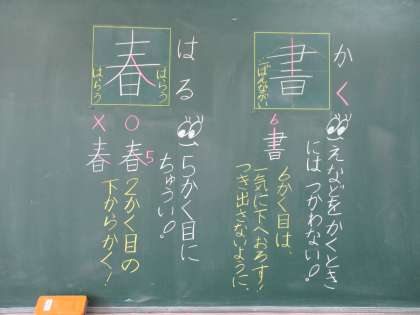 かく
書
いちばんながい
えなどをかくとき
にはつかわない!
6
書
6かく目は、
一気に下へおろす!
つき出さないように。
はる
春
はらう
はらう
5かく目に
ちゅうい!
○
春
5
×
春
2かく目の
下からかく!